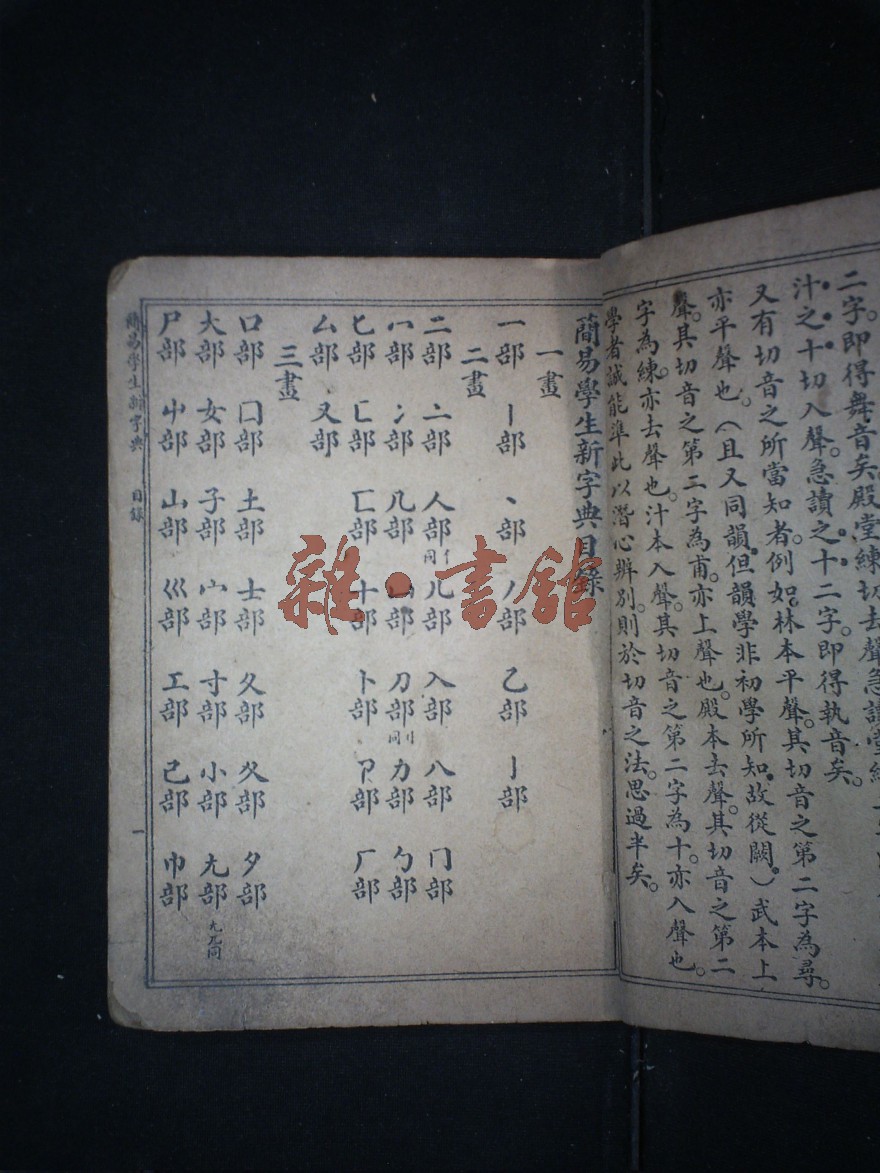 二字。即得舞音矣。殿堂練切去聲。急讀堂練
汁之十切入聲。急讀之十二字。即得執音矣。
又有切音之所當知者。例如林本平聲。其切音之第二字為尋。
亦平聲也。(且又同韻。但韻學非初學所知。故從闕。)武本上
聲。其切音之第二字為甫。亦上聲也。殿本去聲。其切音之第二
字為練。亦去聲也。汁本入聲。其切音之第二字為十。亦入聲也。
學者誠能準此以潛心辨別。則於切音之法。思過半矣。
簡易學生新字典目錄
一畫
一部 丨部 丶部 丿部 乙部 亅部
二畫
二部 亠部 人部亻同 儿部 入部 八部 冂部
冖部 冫部 几部 凵部 刀部刂同 力部 勹部
匕部 匚部 匸部 十部 卜部 卩部 厂部
厶部 又部
三畫
口部 囗部 土部 士部 夂部 夊部 夕部
大部 女部 子部 宀部 寸部 小部 尢部尣兀同
尸部 屮部 山部 巛部 工部 己部 巾部
簡易學生新字典 目錄 一
雜·書館